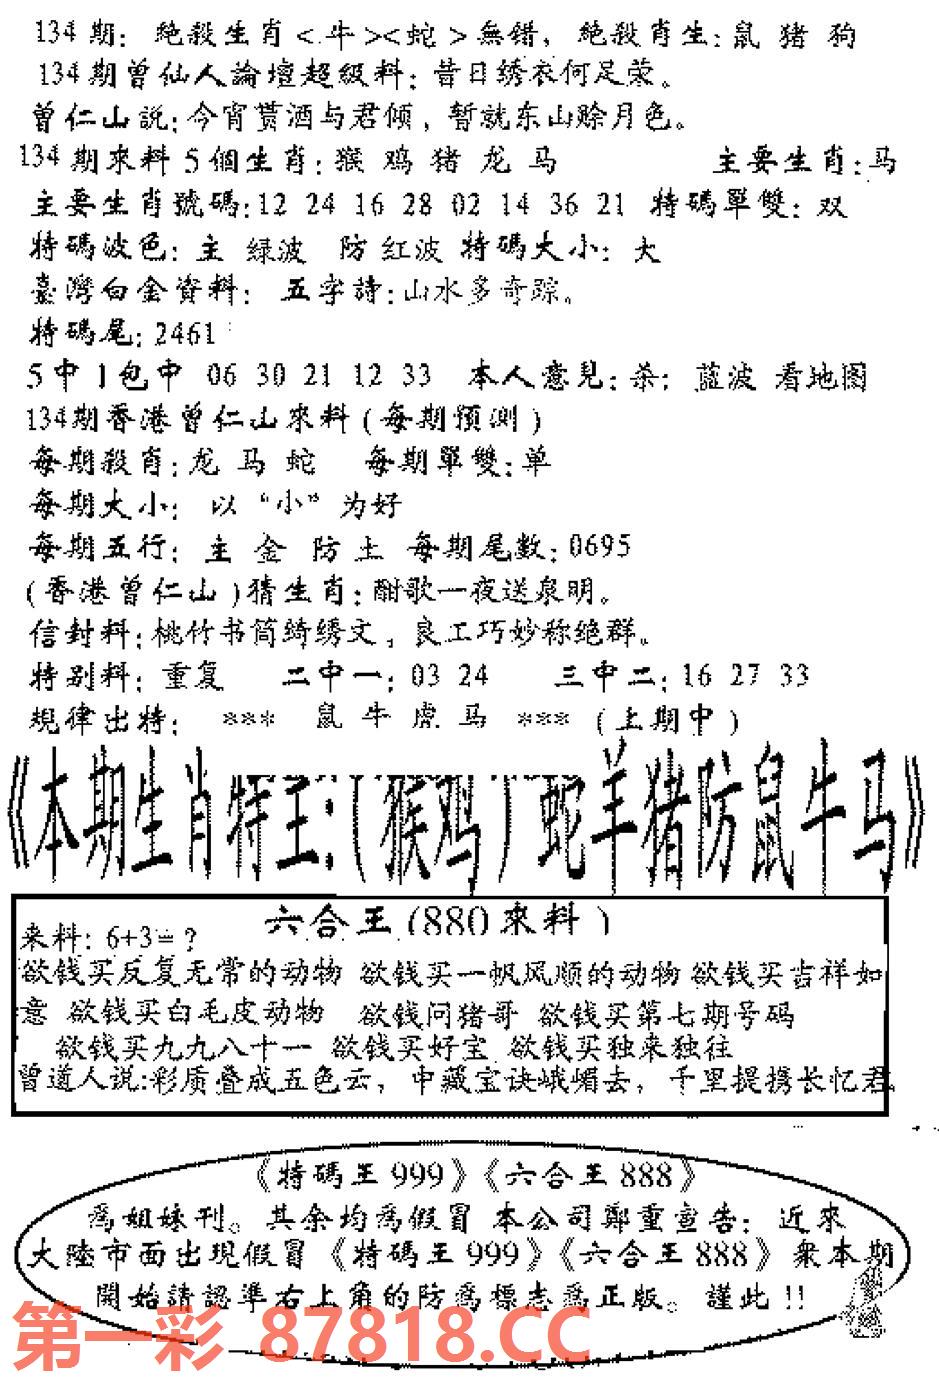 134期: 絶殺生肖<牛><蛇>無错, 絶殺肖生:鼠 猪 狗
134期曾仙人論壇超級料:昔日绣衣何足荣。
曾仁山説:今宵贳酒与君倾, 暂就东山赊月色。
134期來料5個生肖:猴 鸡 猪 龙 马 主要生肖:马
主要生肖號碼:12 24 16 28 02 14 36 21 特碼單雙: 双
特碼波色: 主 绿波 防 红波 特碼大小: 大
臺灣白金資料: 五字詩:山水多奇踪。
特碼尾: 2461
5中1包中 06 30 21 12 33 本人意見: 恭: 蓝波 看地图
134期香港曾仁山來料(每期預測)
每期殺肖:龙 马 蛇 每期單雙:单
每期大小: 以“小”为好
每期五行: 主 金 防 土 每期尾數:0695
(香港曾仁山)猜生肖:酣歌一夜送泉明。
信封料:桃竹书筒绮绣文, 良工巧妙称绝群。
特别料: 重复 二中一: 03 24 三中二: 16 27 33
規律出特: *** 鼠 牛 虎 马 *** (上期中)
《本期生肖特王:(猴鸡)蛇羊猪防鼠牛马》
六合王(880來料)
来料: 6+3=?
欲钱买反复无常的动物 欲钱买一帆风顺的动物 欲钱买吉祥如
意 欲钱买白毛皮动物 欲钱问猪哥 欲钱买第七期号码
欲钱买九九八十一 欲钱买好宝 欲钱买独来独往
曾道人说:彩质叠成五色云, 中藏宝诀峨嵋去, 千里提携长忆君
《特碼王999》《六合王888》
爲姐妹刊。其余均爲假冒 本公司鄭重宣告: 近來
大陸市面出現假冒《特碼王999》《六合王888》衆本期
開始請認準右上角的防爲標志爲正版。謹此!!
第一彩 87818.CC